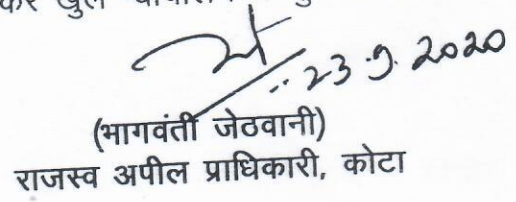 कर खुले
23.9.2020
(भागवंती जेठवानी)
राजस्व अपील प्राधिकारी, कोटा